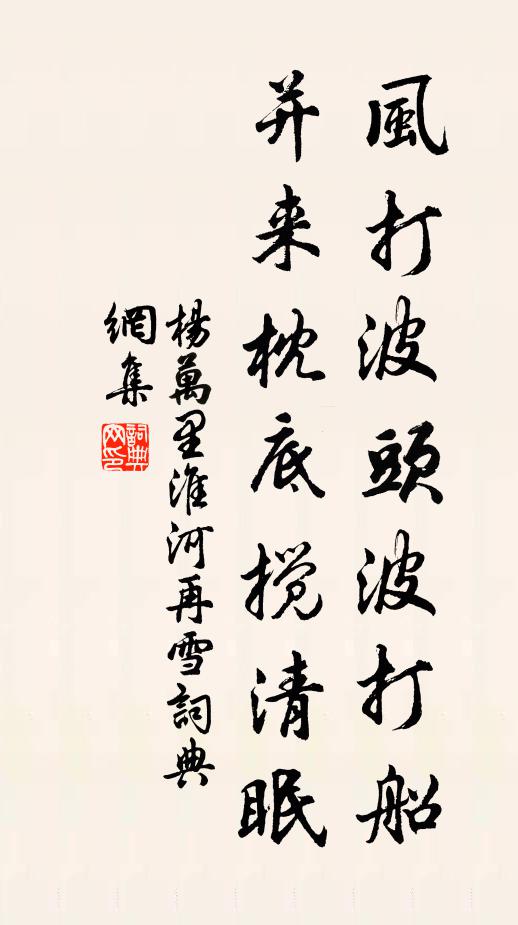 風打波頭波打船
并来枕底搅清眠
楊萬里淮河再雪詞典
網集
詞典
网印